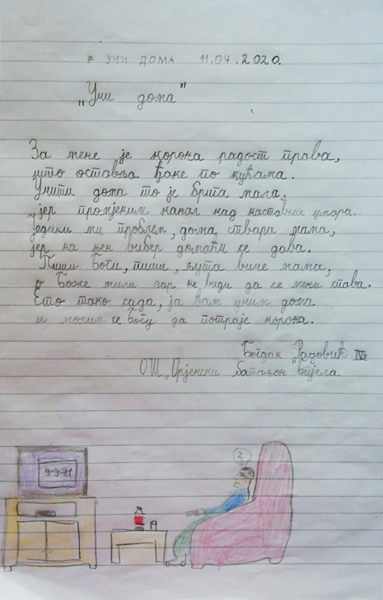 # УЧИ ДОМА 11.04.2020.
„Учи дома"
За мене је корона радост права,
што оставља ђаке по кућама.
Учити дома то је брига мала.
јер промјеним канал кад наставник умара.
Једини ми проблем, дома, ствара мама,
јер на њен вибер домаћи се дава.
Пиши Боћи, пиши, љута виче мама,
о Боже мили зар не види да се мени спава.
Ето тако сада, ја вам учим дома
и молим се Богу да потраје корона.
Богдан Радовић IV
ОШ „Орјенски батаљон Бијела
9-9-81
z